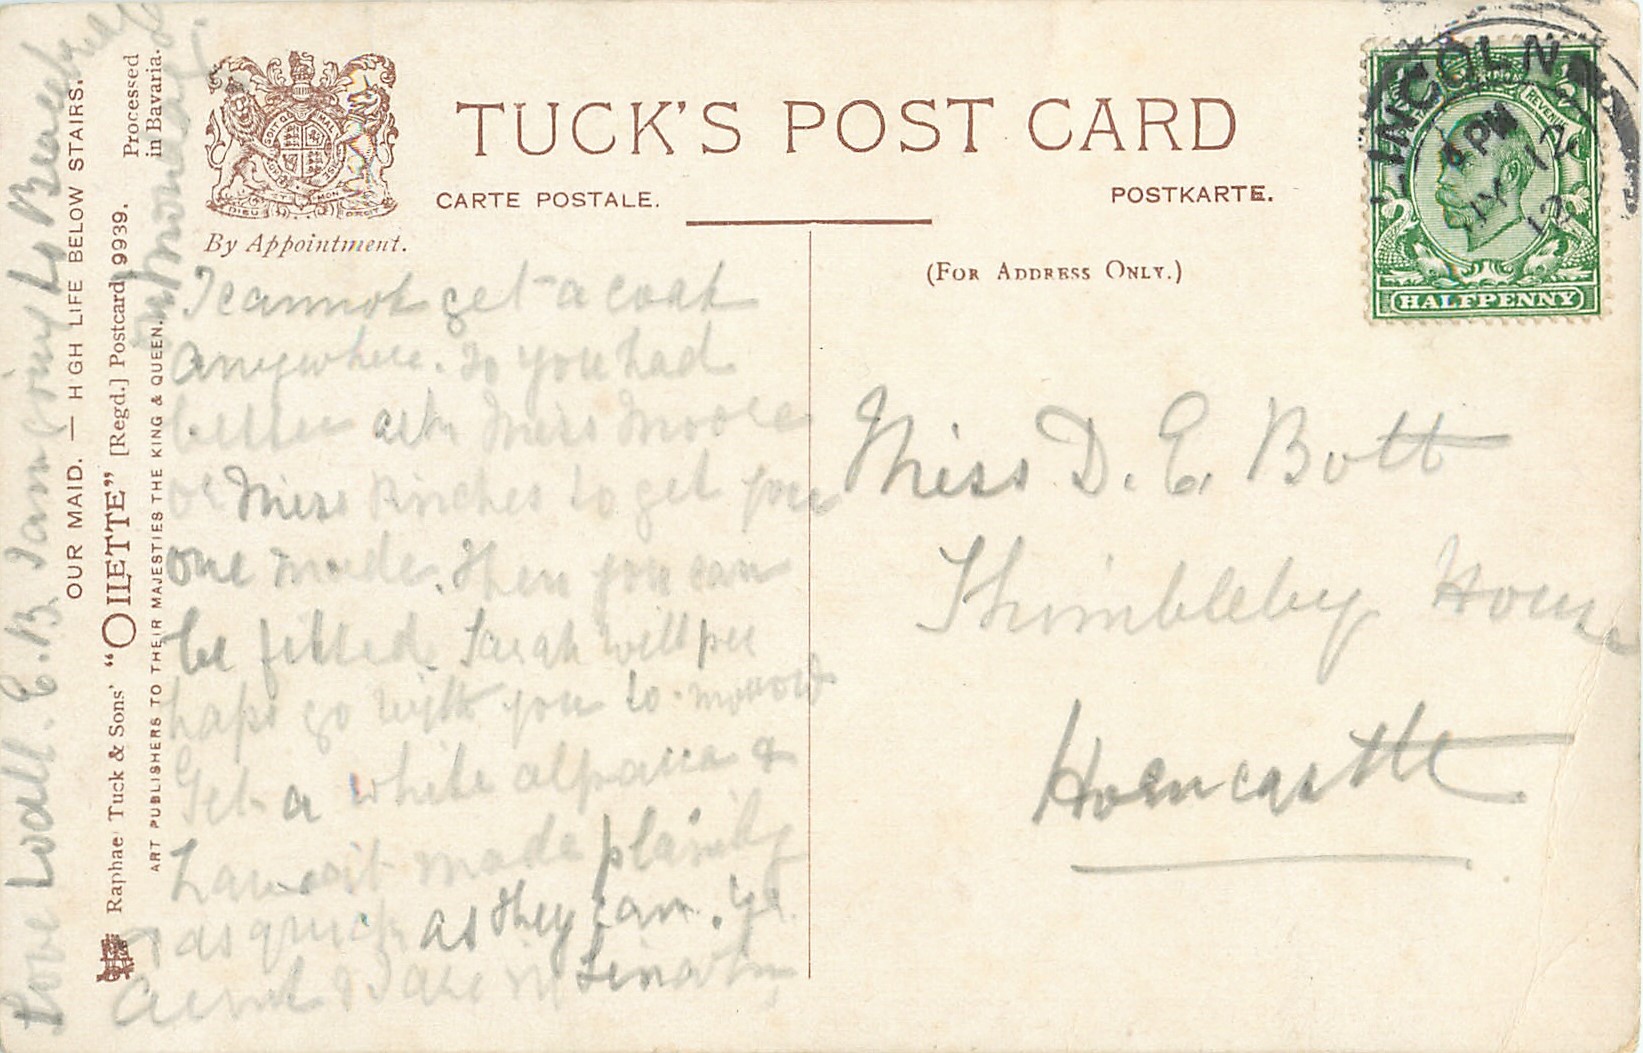 TUCK'S POST CARD
CARTE POSTALE.
POSTKARTE.
By Appointment.
(FOR ADDRESS ONLY.)
DIEU ET MON DROIT
LINCOLN
6 PM
MY 12
12
REVENUE
HALFPENNY
Miss D. E. Bott
Thimbleby House
Horncastle
I cannot get a coat
anywhere. So you had
better ask Miss Moore
or Miss Pinches to get you
one made. Then you can
be fitted. Sarah will per
haps go with you to-morrow
Get a white alpacca &
have it made plainly
& as quick as they can. Yr.
Aunt & I are in Lincoln
Love to all. E. B. I am going to
OUR MAID. — HIGH LIFE BELOW STAIRS.
Raphael Tuck & Sons' "OILETTE" [Regd.] Postcard 9939.
Processed
in Bavaria.
ART PUBLISHERS TO THEIR MAJESTIES THE KING & QUEEN.